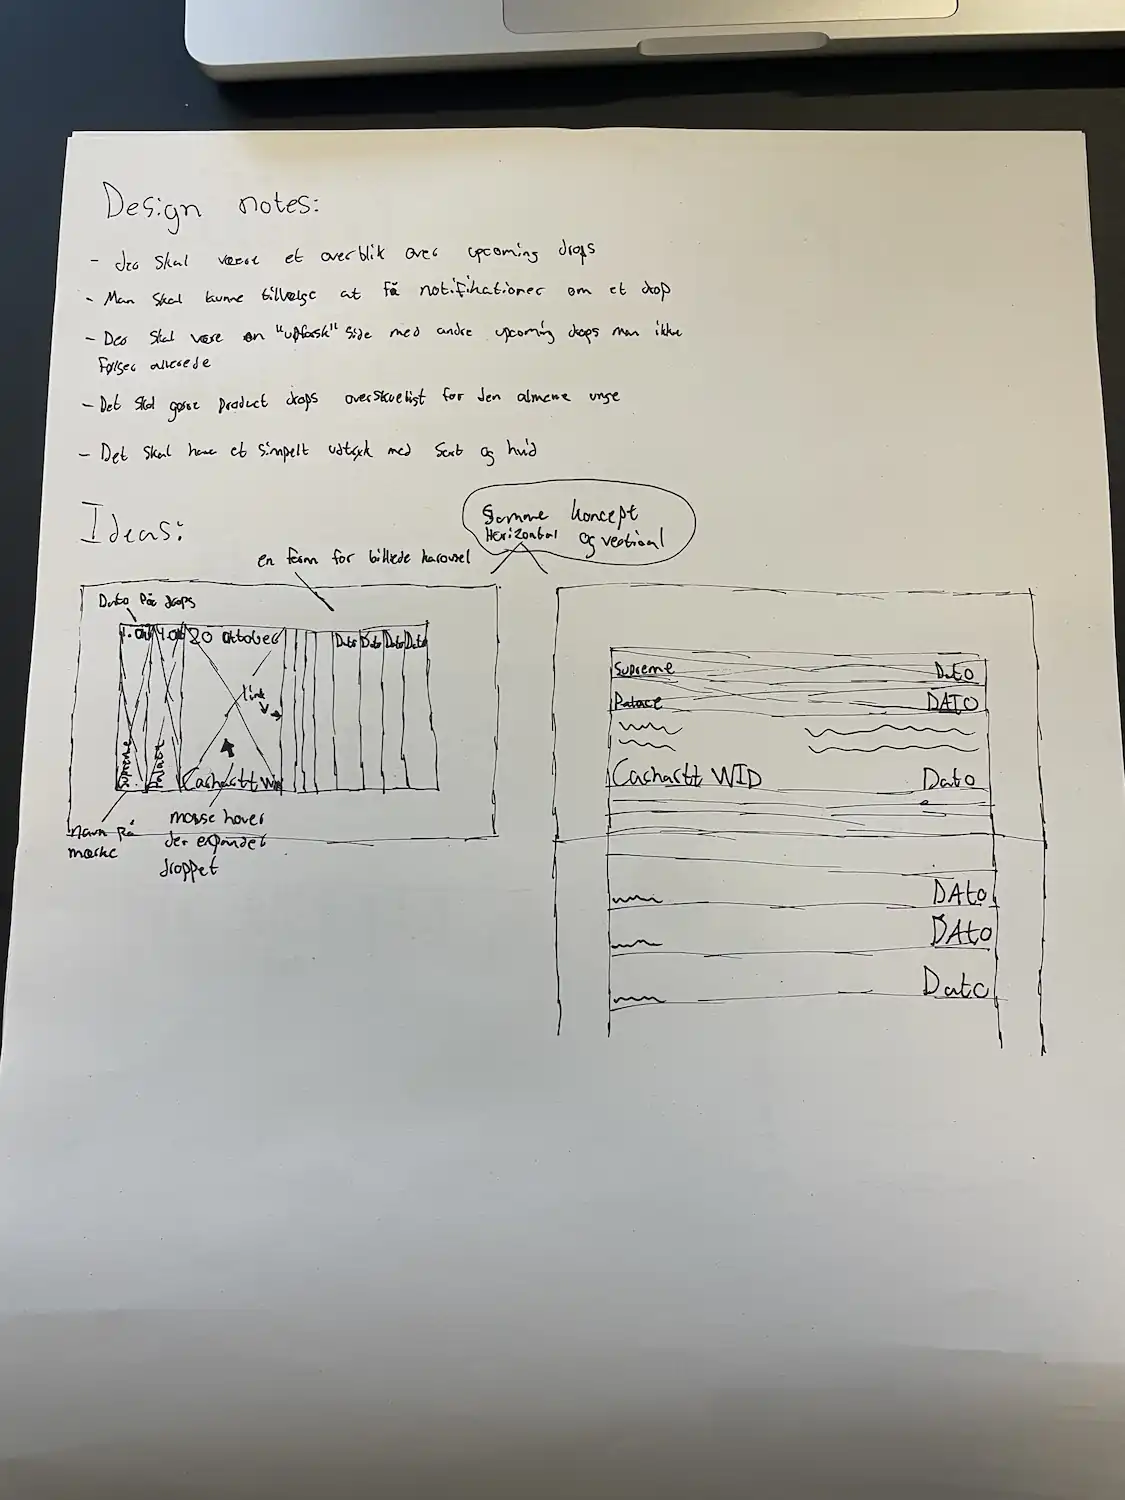 Design notes:
- der skal være et overblik over upcoming drops
- Man skal kunne tilvælge at få notifikationer om et drop
- Der skal være en "udforsk" side med andre upcoming drops man ikke
følger allerede
- Det skal gøre product drops overskueligt for den almene unge
- Det skal have et simpelt udtryk med sort og hvid
Ideas:
Samme koncept
Horizontal og vertical
en form for billede karousel
Dato på drops
20 Oktober
Dato Dato Dato Dato
link
Supreme
Carhartt WI
Navn på
mærke
mouse hover
der expander
droppet
Supreme Dato
Palace DATO
Carhartt WID Dato
DAto
DAto
Dato